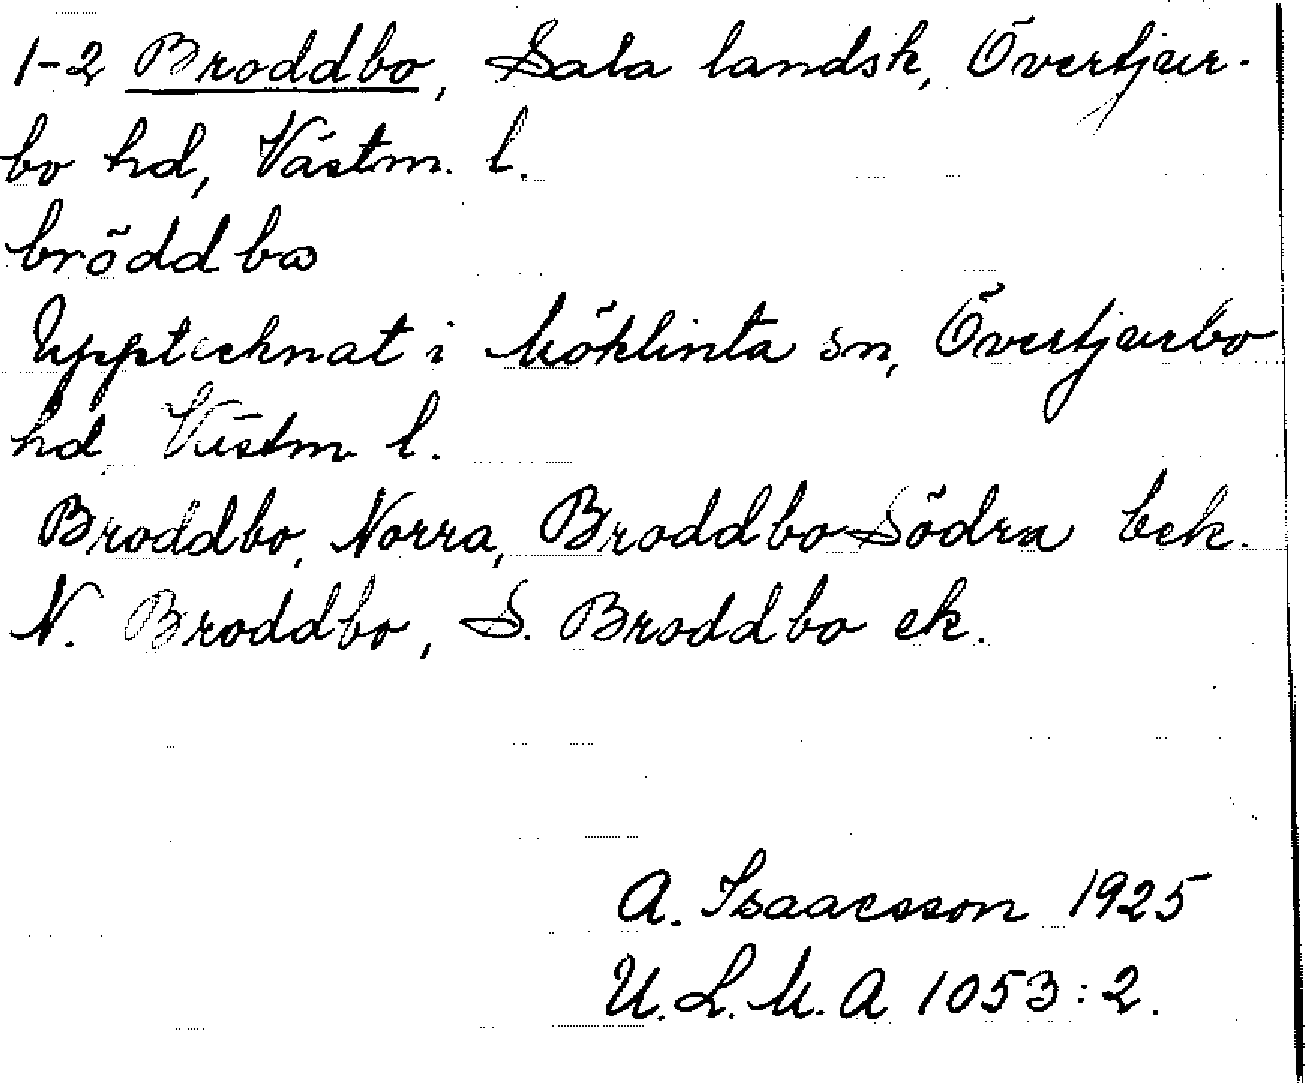 1-2 Broddbo, Sala landsk, Övertjur-
bo hd, Västm. l.
bröddbω
Upptecknat i Möklinta sn, Övertjurbo
hd Västm l.
Broddbo, Norra, Broddbo Södra bek.
N. Broddbo, S. Broddbo ek.
A. Isaacsson 1925
U.L.M.A 1053:2.